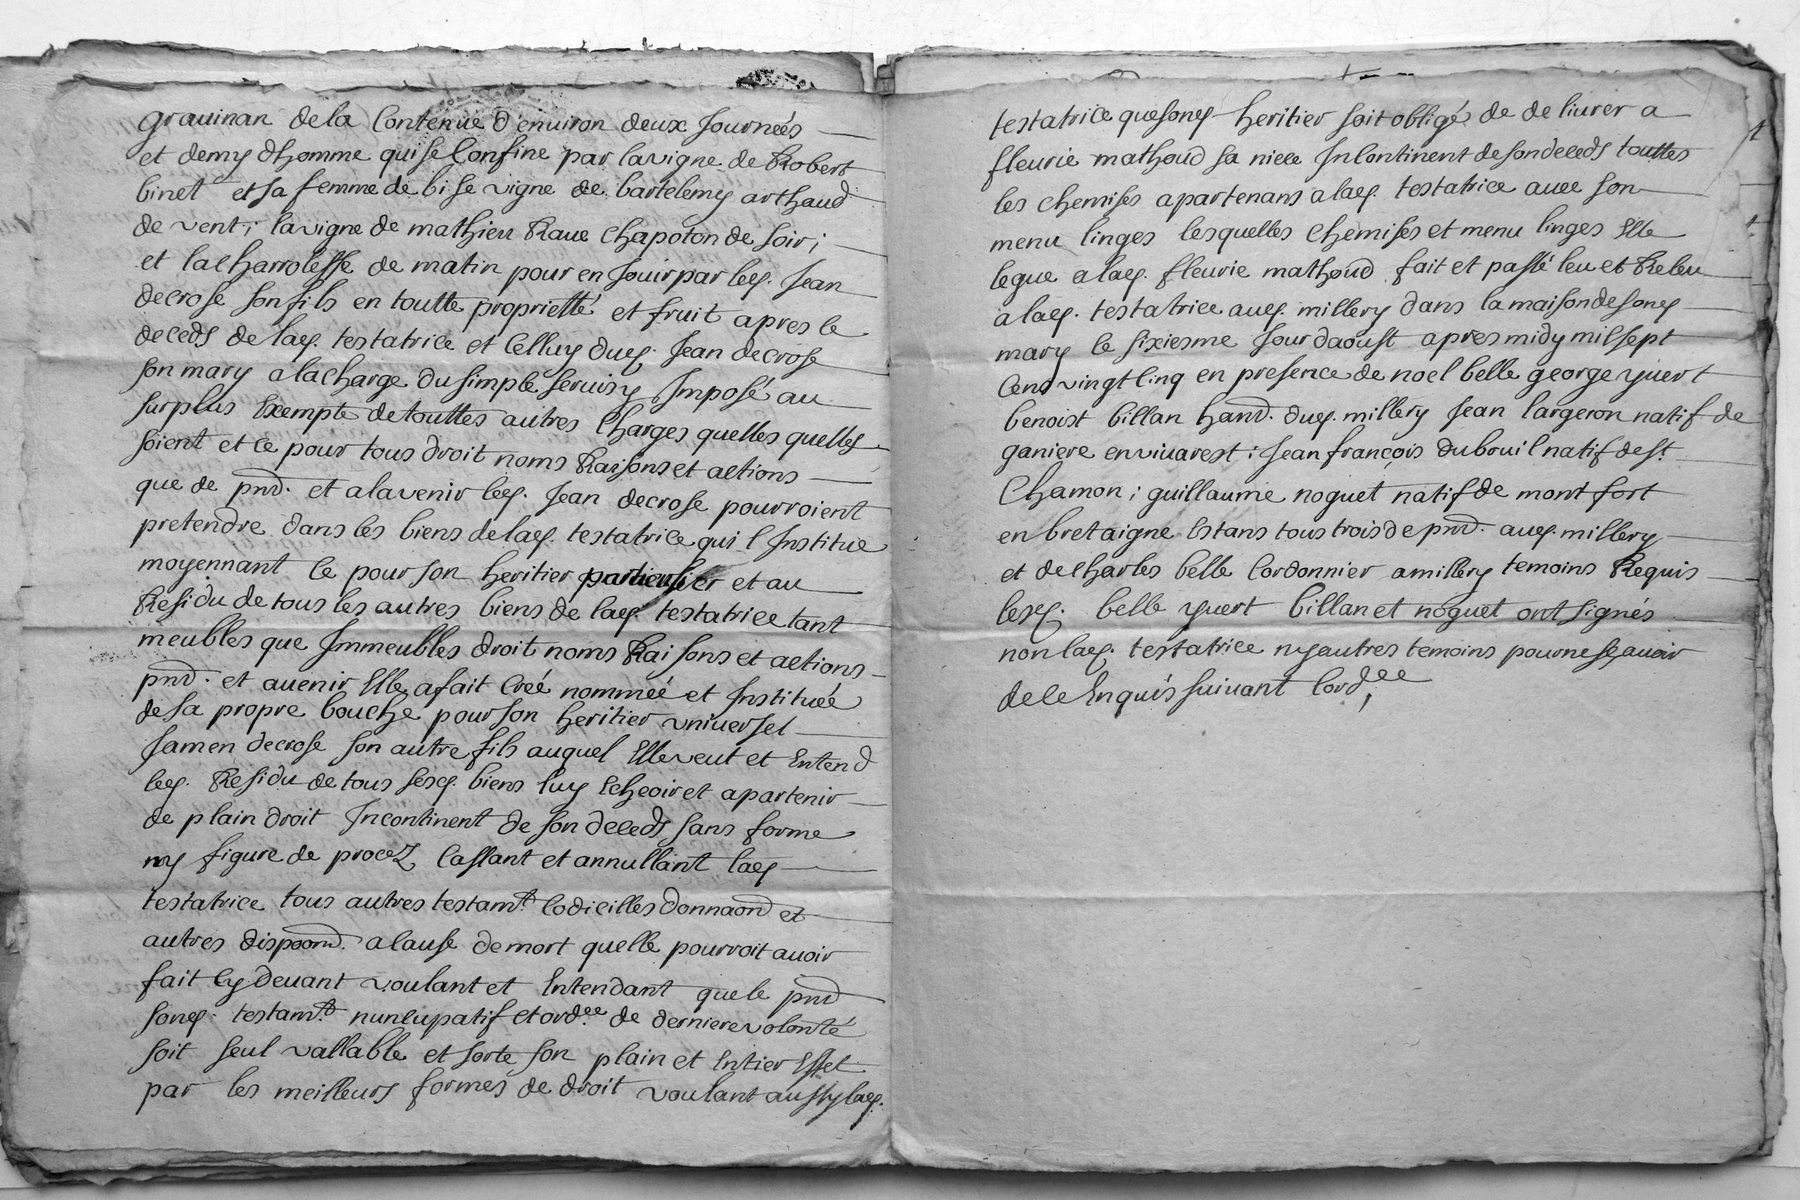 grauinan de la Contenüe d'enuiron deux Journées
et demy dhomme qui se Confine par la vigne de Robert
binet et sa femme de bise vigne de bartelemy arthaud
de vent; la vigne de mathieu Raue chapoton de soir;
et la charrolesse de matin pour en Jouir par led. Jean
decrose son fils en toutte proprietté et fruit apres le
deceds de lad. testatrice et Celluy dud. Jean decrose
son mary a la charge du simple seruisy Imposé au
surplus Exempte de touttes autres Charges quelles quelles
soient et ce pour tous droit noms Raisons et actions
que de pnt. et alavenir led. Jean decrose pourroient
pretendre dans les biens de lad. testatrice qui l Institue
moyennant Ce pour son heritier particulier et au
Residu de tous les autres biens de lad. testatrice tant
meubles que Immeubles droit noms Raisons et actions
pnt. et auenir Elle a fait Creé nommeé et Instituée
de sa propre bouche pour son heritier vniuersel
Jamen decrose son autre fils auquel Elle veut et Entend
led. Residu de tous sesd. biens luy Echeoir et apartenir
de plain droit Incontinent de son deceds sans forme
ny figure de procez Cassant et annullant lad
testatrice tous autres testamt. Codicilles donnaond et
autres dispoond. a Cause de mort quelle pourroit auoir
fait Cy deuant voulant et Entendant que le pnt
sond. testamt. nuncupatif et ordee. de derniere volonté
soit seul vallable et sorte son plain et Entier Effet
par les meilleurs formes de droit voulant aussy lad.
testatrice que sond heritier soit obligé de de liurer a
fleurie mathoud sa niece Incontinent de son deceds touttes
les chemises apartenans a lad. testatrice auec son
menu linges lesquelles chemises et menu linges Elle
legue a lad. fleurie mathoud fait et passé leu et Releu
a lad. testatrice aud. millery dans la maison de sond
mary le sixiesme Jour daoust apres midy mil sept
Cens vingt Cinq en presence de noel belle george yuert
benoist billan hant. dud. millery Jean largeron natif de
ganiere en viuarest; Jean françois dubruil natif de st.
Chamon; guillaume noguet natif de mont fort
en bretaigne Estans tous trois de pnt. aud. millery
et de Charles belle Cordonnier a millery temoins Requis
lesd. belle yuert billan et noguet ont signés
non lad. testatrice ny autres temoins pour ne sçauoir
de ce Enquis suiuant lordee;